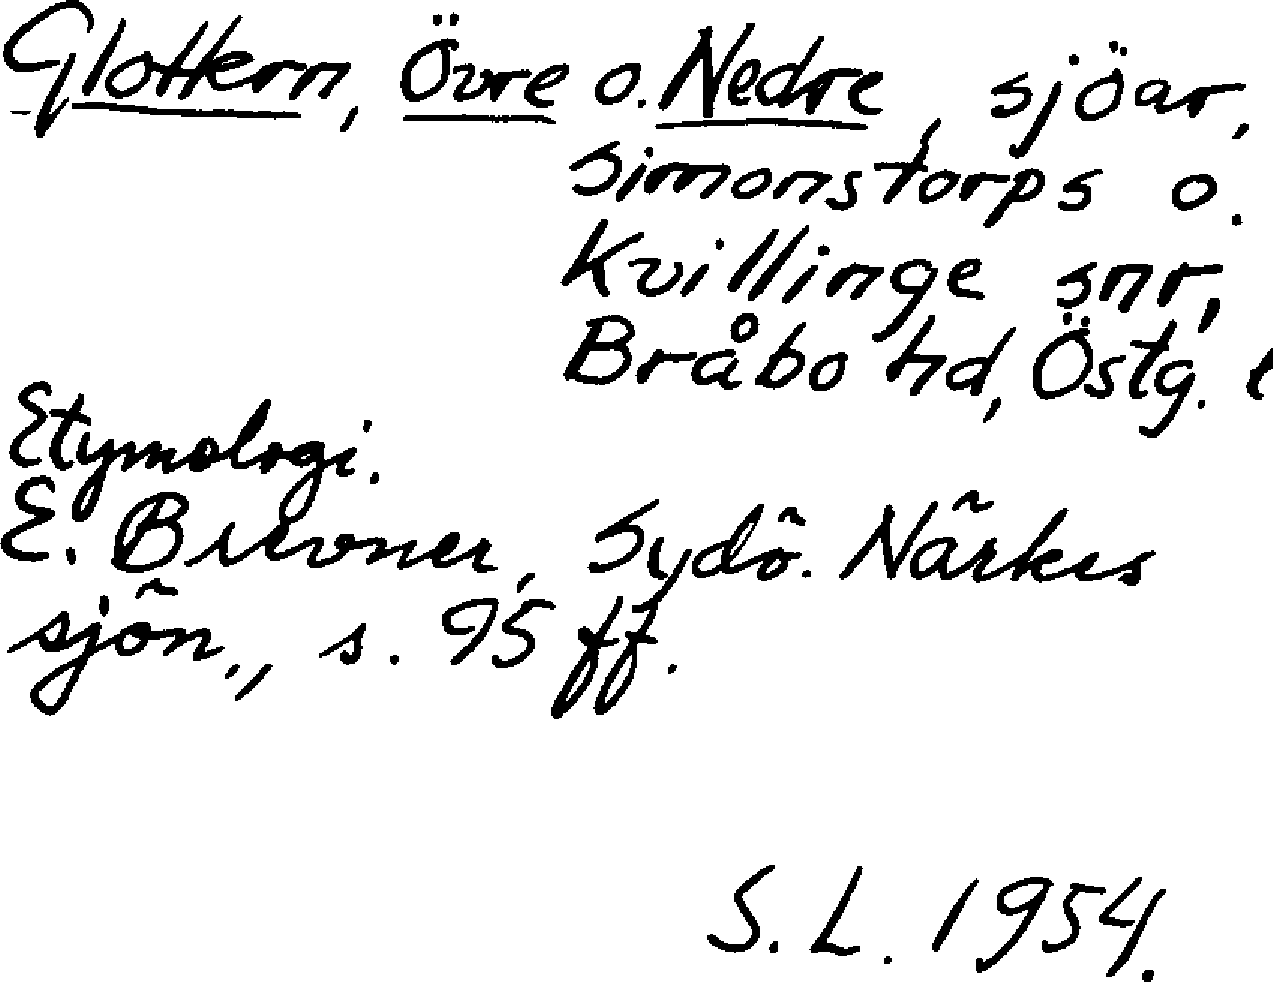 Glottern, Övre o. Nedre, sjöar,
Simonstorps o.
Kvillinge snr,
Bråbo hd, Östg. l
Etymologi.
E. Brevner, Sydö. Närkes
sjön., s. 95 ff.
S. L. 1954.